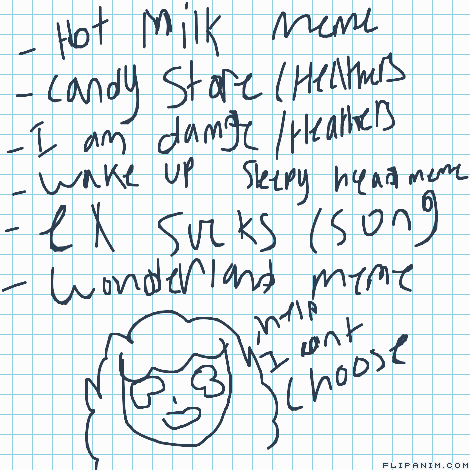 - Hot Milk meme
- Candy Store (Heathers
- I am damge /Heathers
- wake up sleepy head meme
- ex sucks (song)
- wonderland meme
help
I cant
choose
FLIPANIM.COM